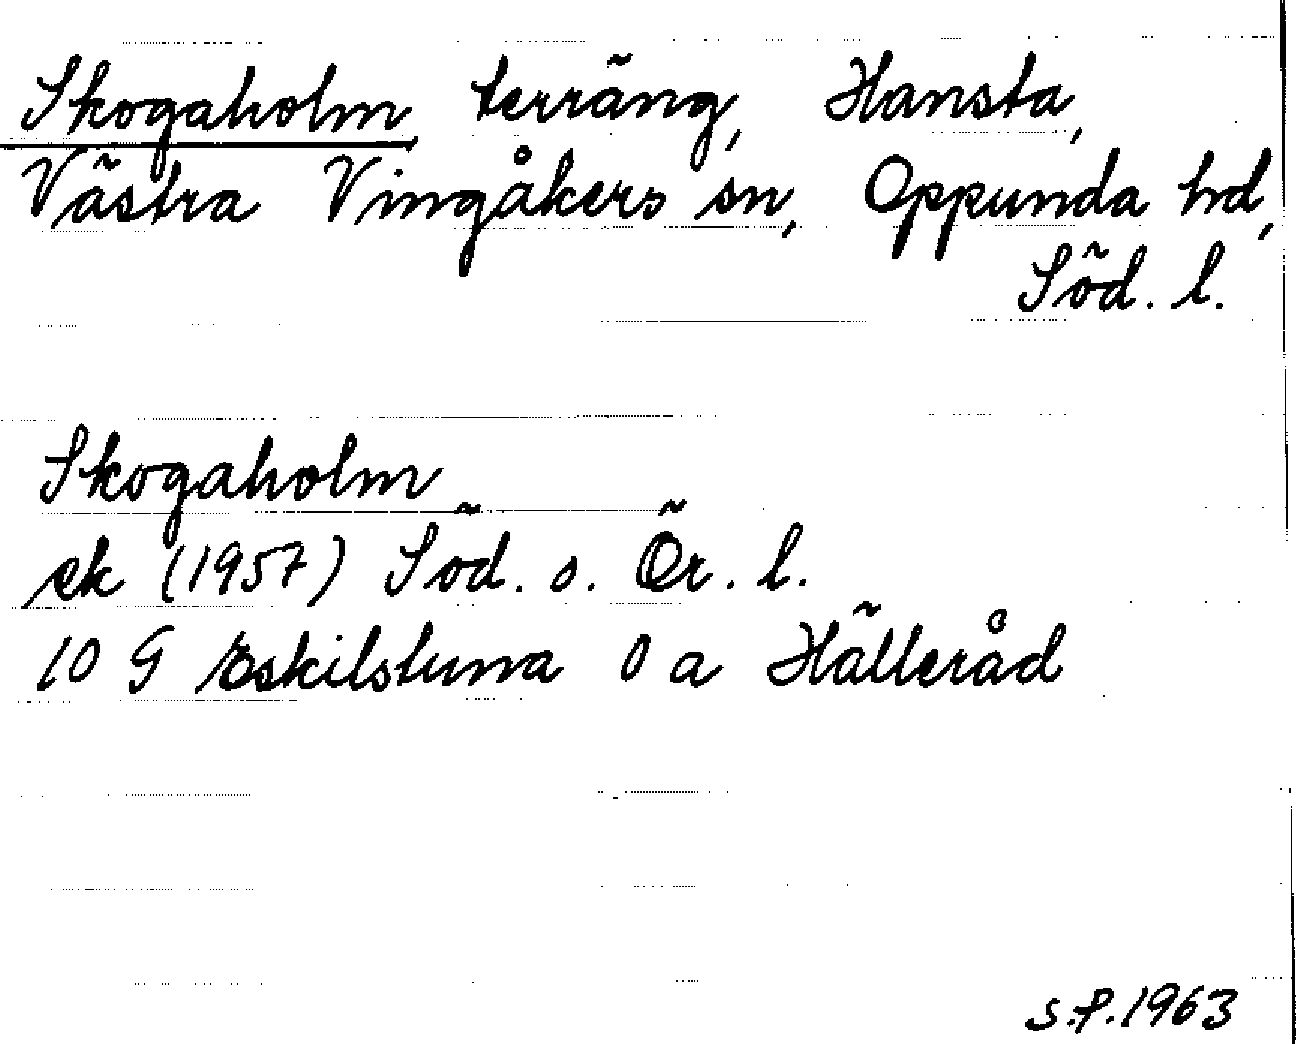 Skogaholm, terräng, Hansta,
Västra Vingåkers sn, Oppunda hd,
Söd. l.
Skogaholm
ek (1957) Söd. o. Ör. l.
10 G Eskilstuna 0 a Hälleråd
s.f. 1963